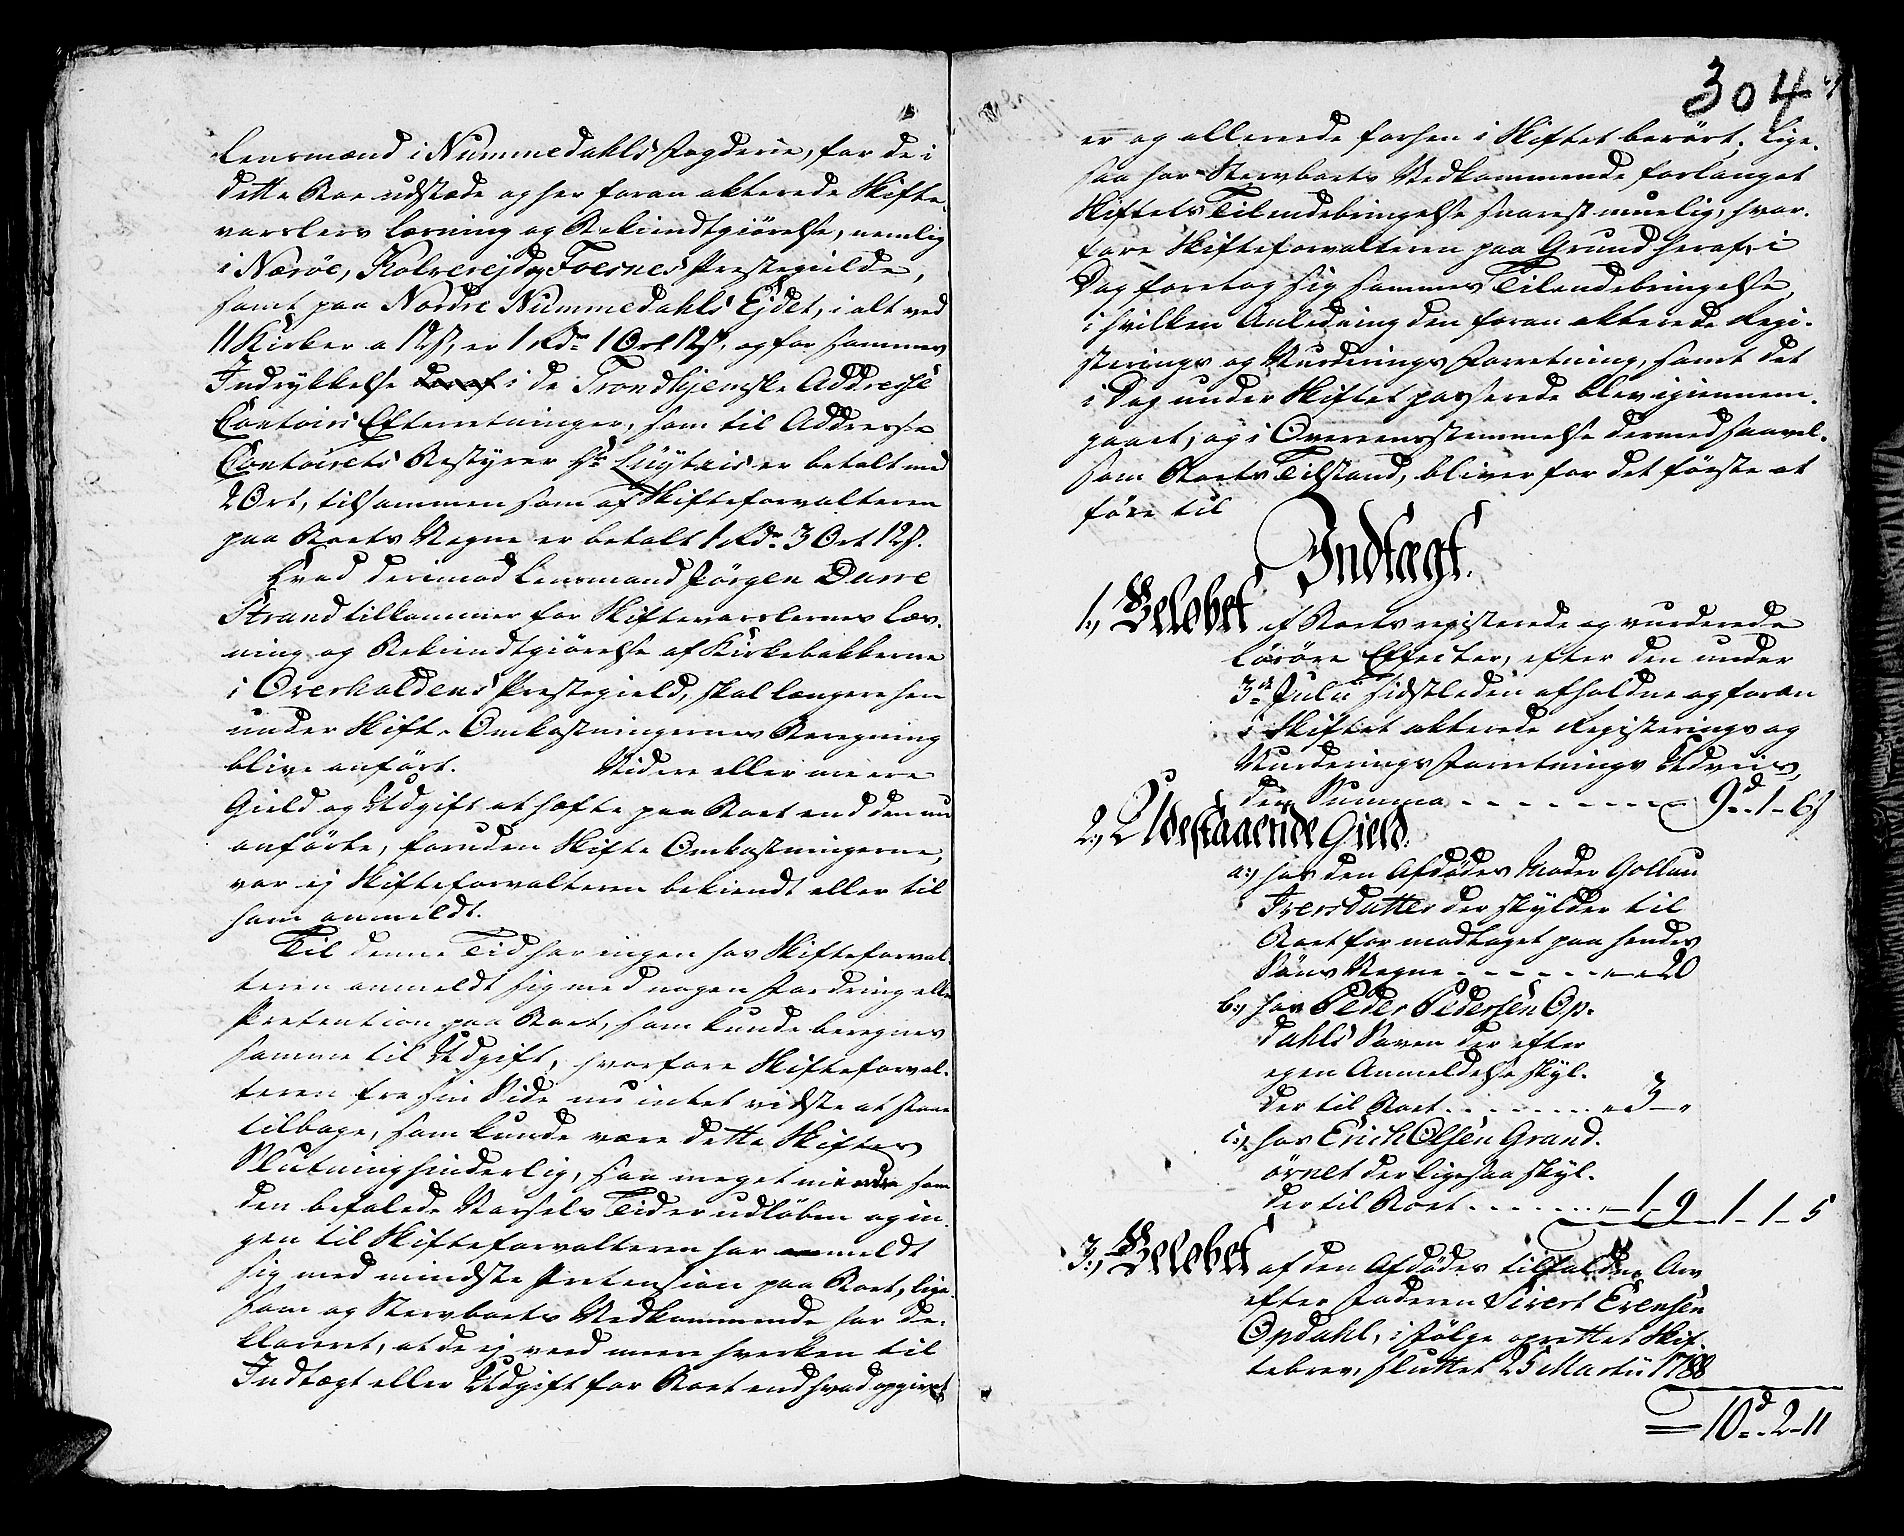 Lensmænd i Nummedahls Fogderie, for de i
dette Boe udstæde og her foran akterede Skifte-
varslers Læsning og Bekiendtgiørelse, nemlig
i Nærøe, Kolvereid og Foesnes Præstegielde,
samt paa Nordre Nummedahls Ejdet, i alt ved
11 Kirker a 12 s, er 1 Rdr 1 Ort 12 s, og for sammes
Indrykkelse deraf i de Trondhjemske Addresse
Contoirs Efterretninger, som til Addresse
Contoirets Bestyrer Hr Lüytkis er betalt med
2 Ort, tilsammen som af Skifteforvalteren
paa Boets Vegne er betalt 1 Rdr 3 Ort 12 s.
Hvad derimod Lensmand Jørgen Darre
Strand tilkommer for Skiftevarslernes Læs-
ning og Bekiendtgiørelse af Kirkebakkerne
i Overhaldens Præstegield, skal længere hen
under Skift-Omkostningernes Beregning
blive anført. Videre eller meere
Gield og Udgift at hæfte paa Boet end den nu
anførte, foruden Skifte Omkostningerne,
var ej Skifteforvalteren bekiendt eller til
ham anmeldt.
Til denne Tid har ingen hos Skifteforval-
teren anmeldt sig med nogen Fordring eller
Prætention paa Boet, som kunde beregnes
samme til Udgift, hvorfore Skifteforval-
teren fra sin Side nu intet vidste at staae
tilbage, som kunde være dette Skiftes
Slutning hinderlig, saa meget mindre som
den befalede Varsels Tid er udløben og in-
gen til Skifteforvalteren har anmeldt
sig med mindste Prætension paa Boet, lige-
som og Stervboets Vedkommende har de-
klareret, at de ej veed meere hverken til
Indtægt eller Udgift for Boet end hvad opgivet
304
er og allerede forhen i Skiftet berørt. Lige-
saa har Stervboets Vedkommende forlanget
Skiftets Tilendebringelse snarest muelig, hvor-
fore Skifteforvalteren paa Grund heraf, i
Dag foretog sig sammes Tilendebringelse,
i hvilken Anledning den foran akterede Regi-
sterings og Vurderings Forretning, samt det
i Dag under Skiftet passerede blev igiennem-
gaaet, og i Overeensstemmelse dermed saavel-
som Boets Tilstand, bliver for det første at
føre til
Indtægt.
1., Beløbet af Boets registerede og vurderede
Løsøre Effecter, efter den under
3de Julii sidstleden afholdne og foran
i Skiftet akterede Registerings og
Vurderings Forretnings Udviis,
den Summa - - - - - - 9d - 1 - 6 s
2., Udestaaende Gield.
a., hos den Afdødes Moder Gollau
Iversdatter der skylder til
Boet for modtaget paa hendes
Søns Vegne - - - - - - 20
b., hos Peder Pedersen Op-
dahls Søven der efter
egen Anmeldelse skyl-
der til Boet . . . . . . 3 - "
c., hos Erich Olsen Grand-
ørnet der ligesaa skyl-
der til Boet . . . . . . 1 - 9 1 - 1 - 5
3., Beløbet af den Afdødes tilfaldne Arv
efter Faderen Sivert Evensen
Opdahl, i følge oprettet Skif-
tebrev, sluttet 25 Martii 1788
10d - 2 - 11